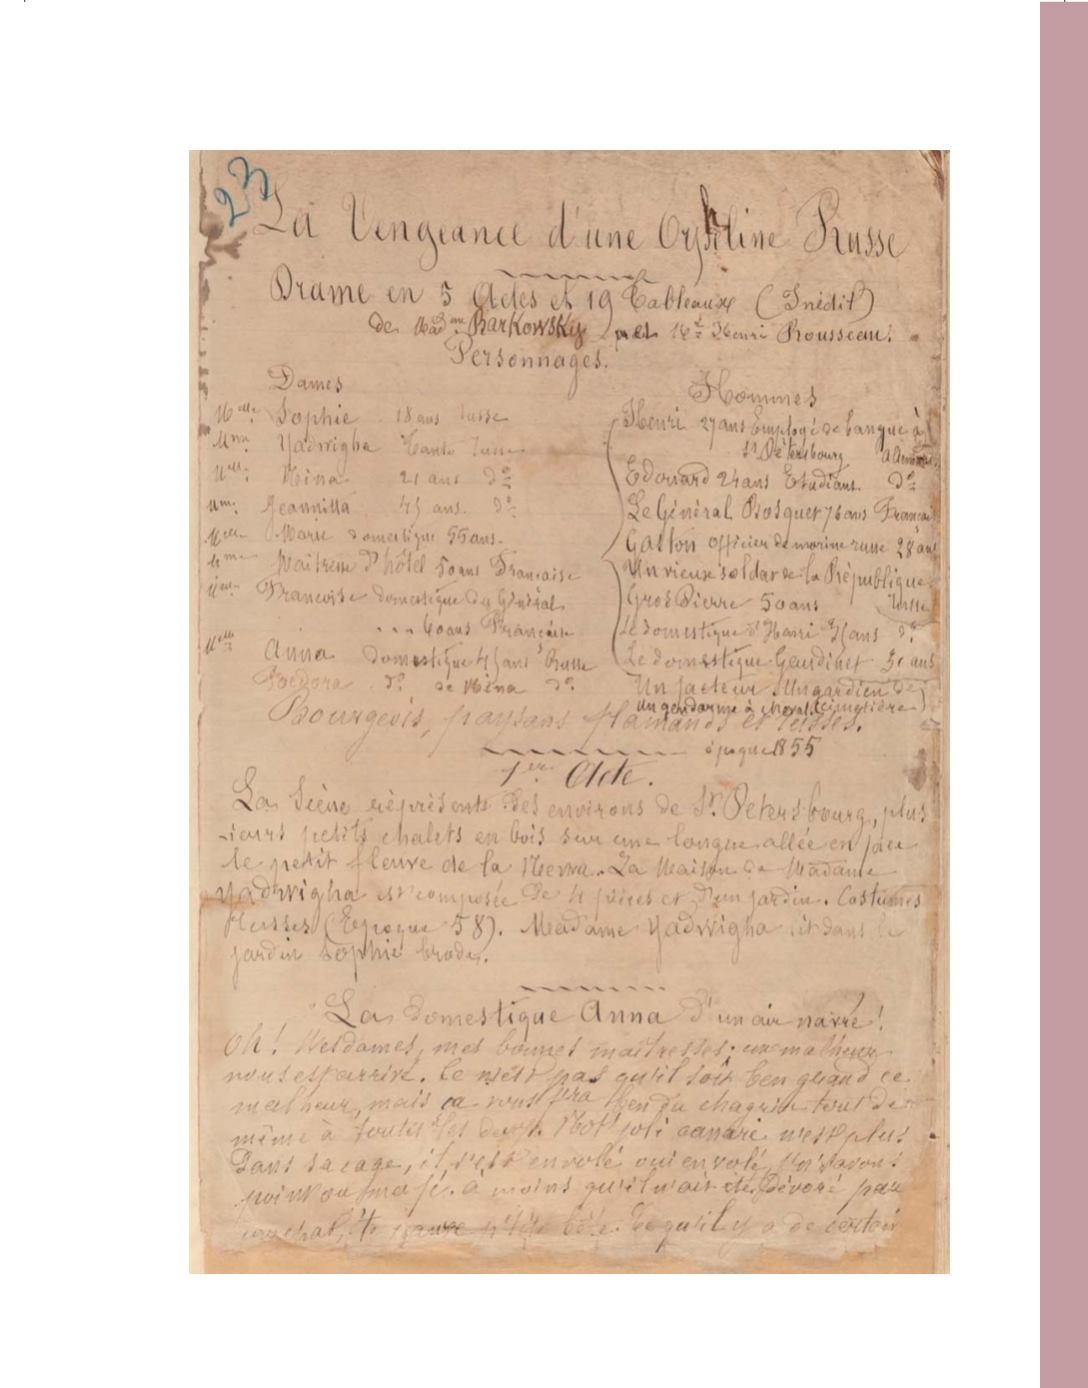 23
La Vengeance d'une Orpheline Russe
Drame en 5 Actes et 19 Tableaux (Inédit)
de Mad.me Barkowsky et Mr Henri Rousseau.
Personnages.
Dames
Melle Sophie 18 ans russe
Mme Yadwigha Tante russe
Melle Nina 21 ans do
Mme Jeannitta 45 ans. do
Melle Marie domestique 55 ans.
Mme Maitresse d'hôtel 50 ans Française
Francoise domestique du Général
... 60 ans Française
Melle Anna domestique 45 ans Russe
Foedora do de Nina do
Hommes
Henri 27 ans Employé de banque à
St Pétersbourg
Edouard 24 ans Etudiant. do
Le Général Bosquet 76 ans Français
Gaston officier de marine russe 28 ans
Un vieux soldat de la République
Gros Pierre 50 ans russe
Le domestique d'Henri 35 ans do
Le domestique Gaudinet 30 ans
Un facteur. Un gardien de
Un gendarme à cheval. cimetière
Bourgeois, paysans flamands et russes.
époque 1855
1er Acte.
La Scène réprésente des environs de St Petersbourg, plus
-ieurs petits chalets en bois sur une longue allée en face
le petit fleuve de la Newa. La Maison de Madame
Yadwigha est composée de 4 pièces et d'un jardin. Costumes
Russes (Epoque 58). Madame Yadwigha lit dans le
jardin Sophie brode.
La domestique Anna d'un air navré!
Oh! Mesdames, mes bonnes maitresses; un malheur
nous est arrivé. Ce n'est pas qu'il soit ben grand ce
malheur, mais ça vous f'ra ben du chagrin tout de
même à toutes les deux. Not' joli canari n'est plus
dans sa cage, il s'est envolé oui envolé, j'n'savons
point ou ma fi. a moins qu'il n'ait été dévoré par
un chat, c'te pauvre p'tite bête. Ce qu'il y a de certain